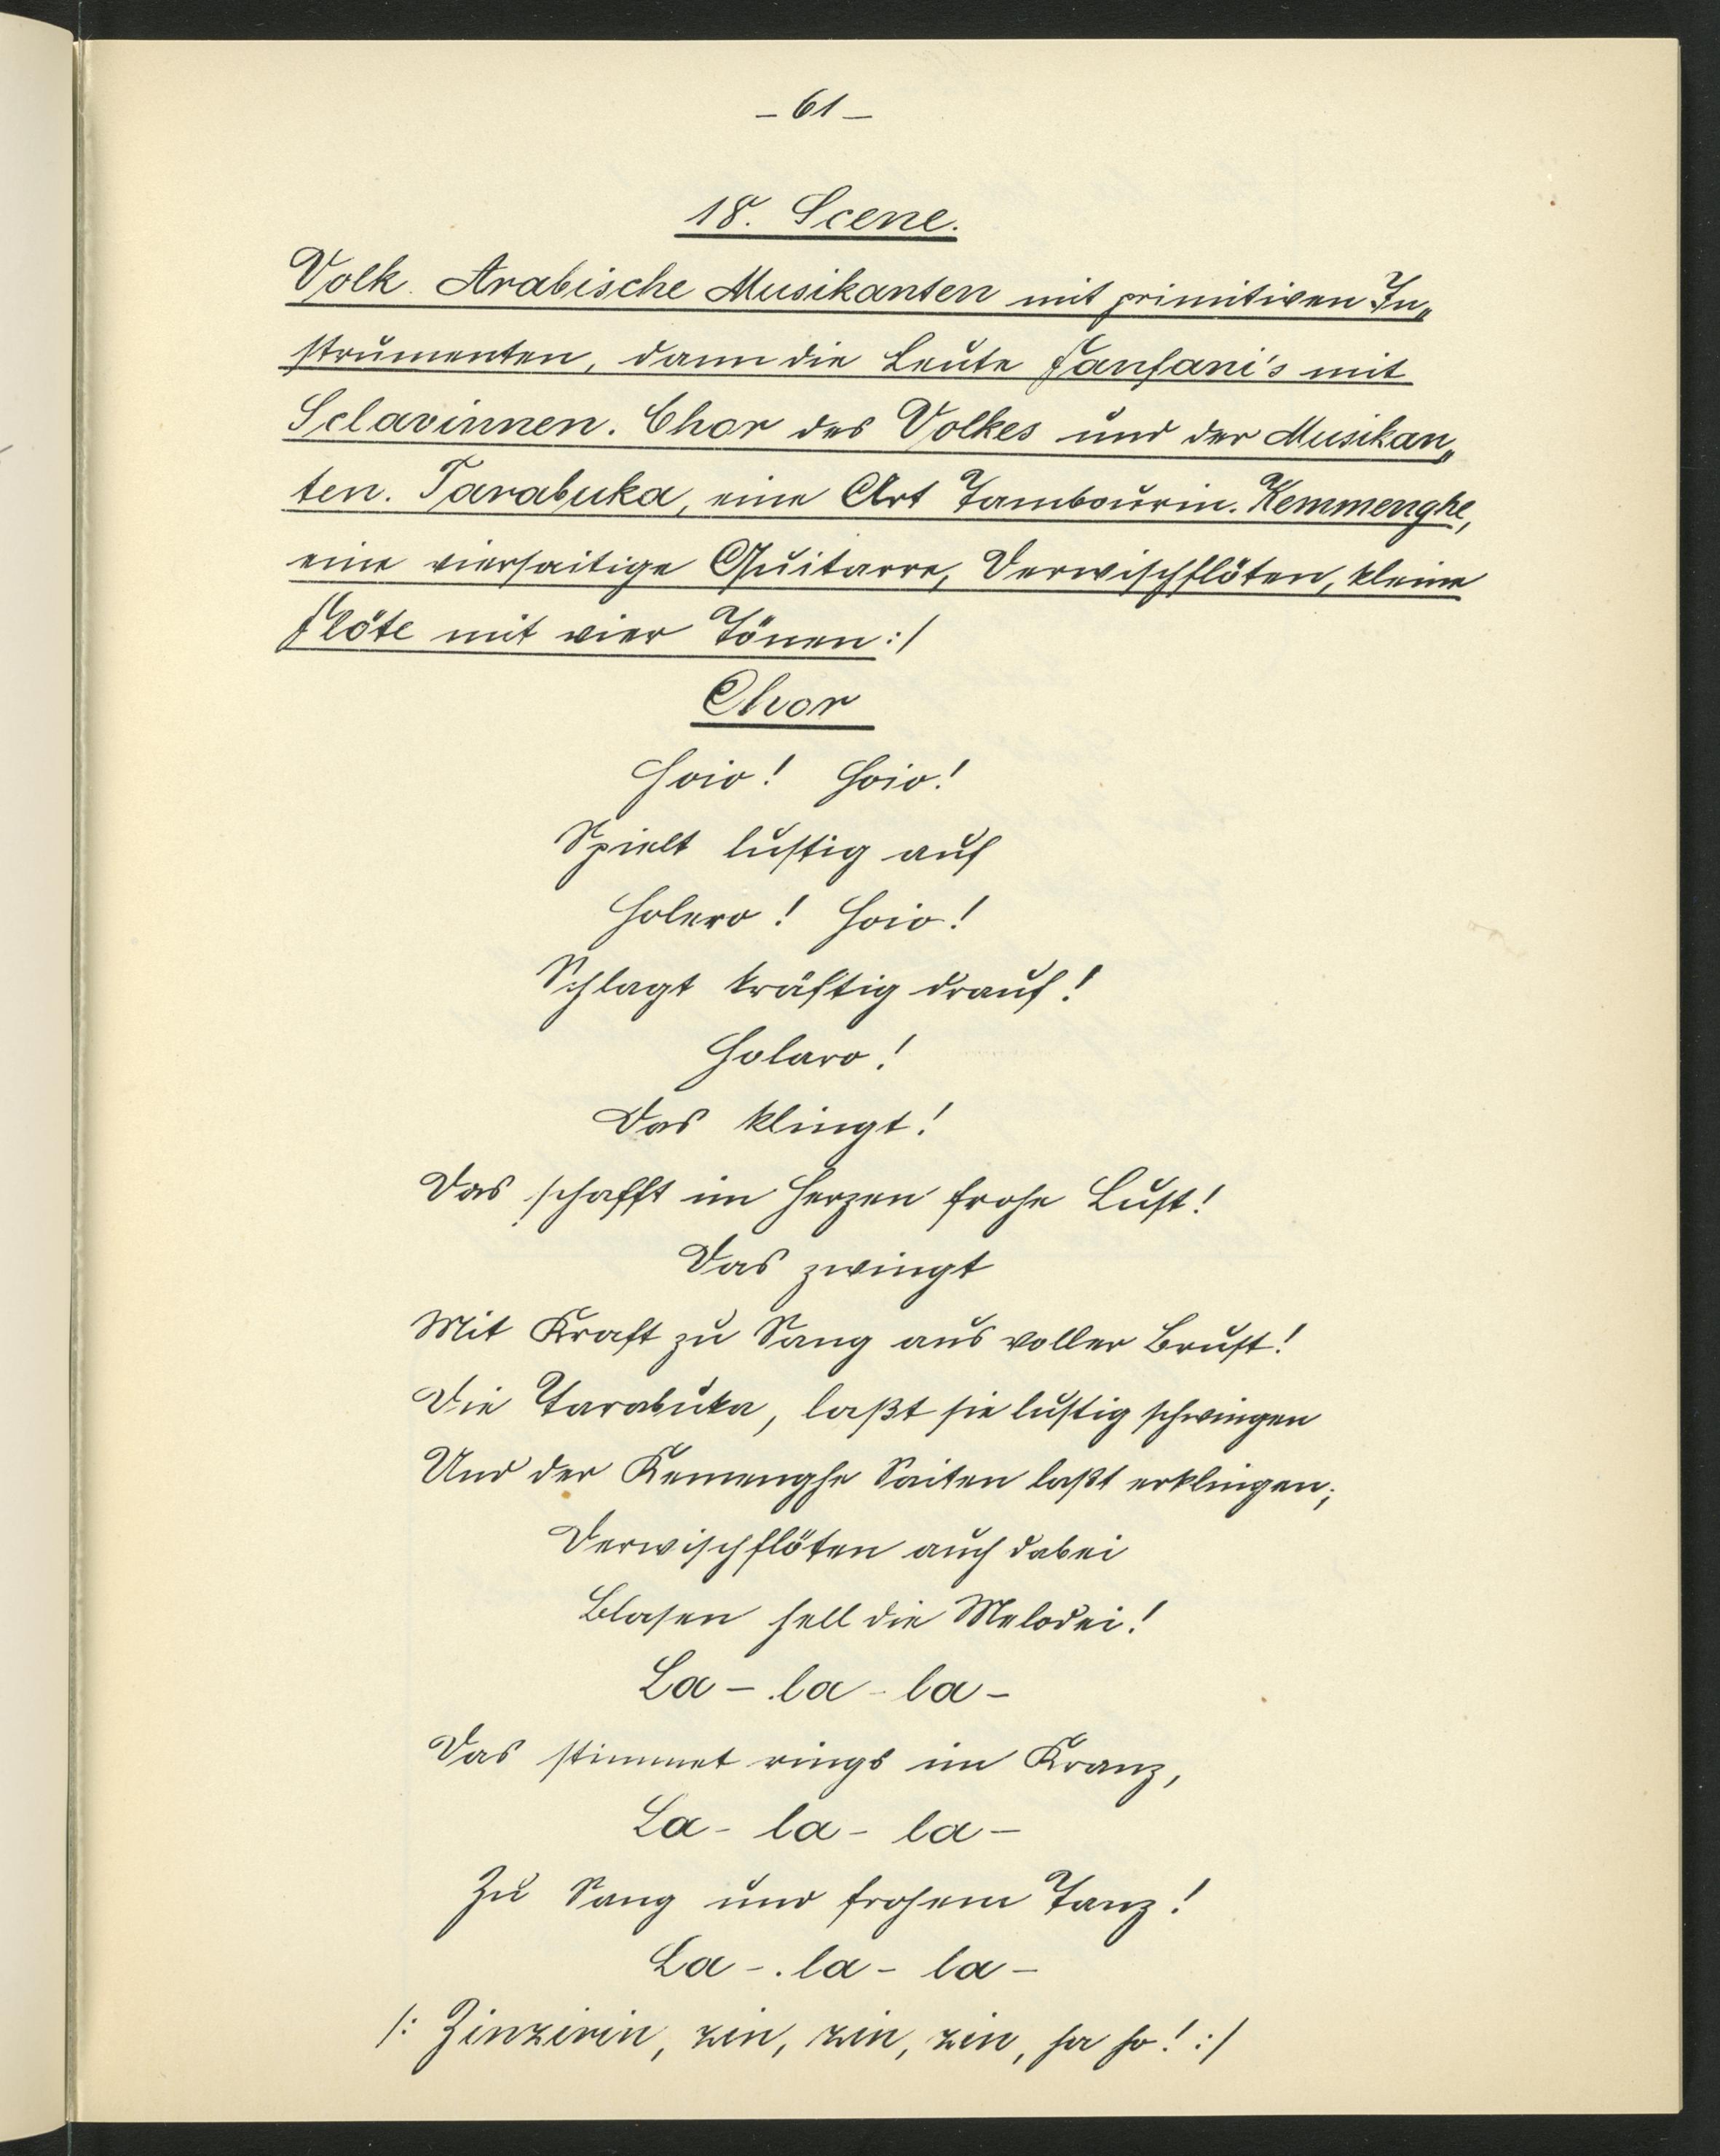 – 61 –
18. Scene.
Volk. Arabische Musikanten mit primitiven In„
strumenten, dann die Leute Fanfani's mit
Sclavinnen. Chor des Volkes und der Musikan„
ten. Tarabuka, eine Art Tambourin. Kemmenghe,
eine viersaitige Guitarre, Derwischflöten, kleine
Flöte mit vier Tönen :/
Chor
Hoio! Hoio!
Spielt lustig auf
Holero! Hoio!
Schlagt kräftig drauf!
Holaro!
Das klingt!
Das schafft im Herzen frohe Lust!
Das zwingt
Mit Kraft zu Sang aus voller Brust!
Die Tarabuka, laßt sie lustig schwingen
Und der Kemenghe Saiten laßt erklingen;
Derwischflöten auch dabei
Blasen hell die Melodei!
La – la - la –
Das stimmet rings im Kranz,
La - la - la –
Zu Sang und frohem Tanz!
La - la - la –
/: Zinzirin, zin, zin, zin, ha ho! :/